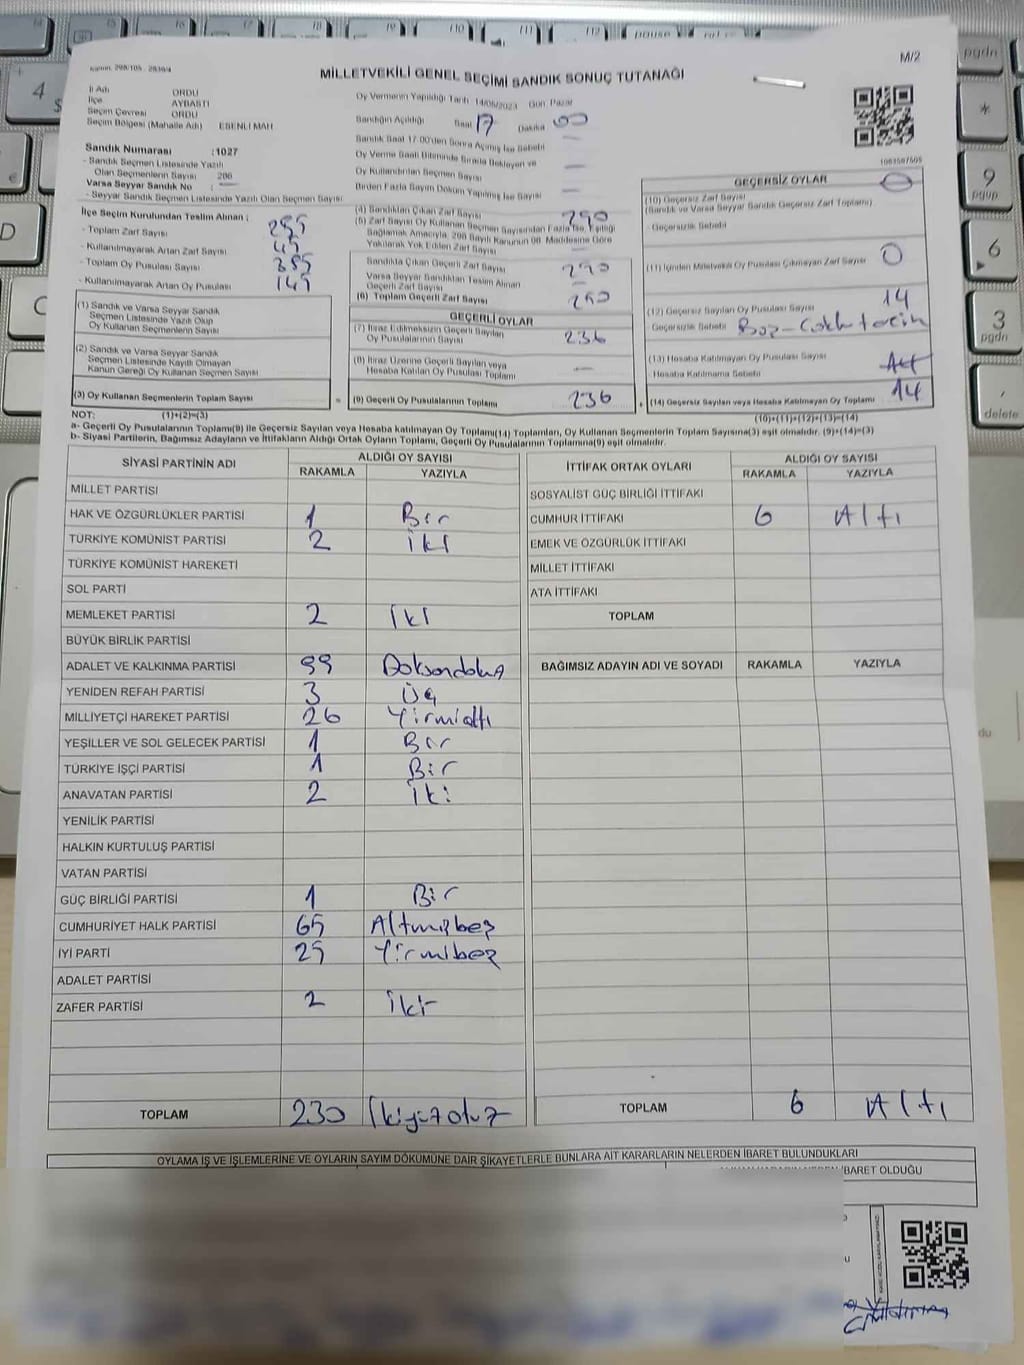 M/2
MİLLETVEKİLİ GENEL SEÇİMİ SANDIK SONUÇ TUTANAĞI
İl Adı ORDU
İlçe AYBASTI
Seçim Çevresi ORDU
Seçim Bölgesi (Mahalle Adı) ESENLİ MAH
Sandık Numarası : 1027
- Sandık Seçmen Listesinde Yazılı
Olan Seçmenlerin Sayısı
Varsa Seyyar Sandık No :
- Seyyar Sandık Listesinde Yazılı Olan Seçmen Sayısı
İlçe Seçim Kurulundan Teslim Alınan :
- Toplam Zarf Sayısı
- Kullanılmayarak Artan Zarf Sayısı
- Toplam Oy Pusulası Sayısı
- Kullanılmayarak Artan Oy Pusulası
(1) Sandık ve Varsa Seyyar Sandık
Seçmen Listesinde Yazılı Olup
Oy Kullanan Seçmenlerin Sayısı
(2) Sandık ve Varsa Seyyar Sandık
Seçmen Listesinde Kayıtlı Olmayan
Kanun Gereği Oy Kullanan Seçmen Sayısı
(3) Oy Kullanan Seçmenlerin Toplam Sayısı =
Oy Vermenin Yapıldığı Tarih 14/05/2023 Gün Pazar
Sandığın Açıldığı Saat 17 Dakika 00
Sandık Saat 17:00'den Sonra Açılmış İse Sebebi
Oy Verme Saati Bitiminde Sırada Bekleyen ve
Oy Kullandırılan Seçmen Sayısı
Birden Fazla Sayım Döküm Yapılmış İse Sayısı
(4) Sandıktan Çıkan Zarf Sayısı 290
(5) Zarf Sayısı Oy Kullanan Seçmen Sayısından Fazla İse, Eşitliği
Bağlamak Amacıyla, 298 Sayılı Kanunun 98. Maddesine Göre
Yakılarak Yok Edilen Zarf Sayısı
Sandıkta Çıkan Geçerli Zarf Sayısı 290
Varsa Seyyar Sandıktan Teslim Alınan
Geçerli Zarf Sayısı
(6) Toplam Geçerli Zarf Sayısı 250
GEÇERLİ OYLAR
(7) İtiraz Edilmeksizin Geçerli Sayılan
Oy Pusulalarının Sayısı 236
(8) İtiraz Üzerine Geçerli Sayılan veya
Hesaba Katılan Oy Pusulası Toplamı —
(9) Geçerli Oy Pusulalarının Toplamı 236 +
1083587505
GEÇERSİZ OYLAR
(10) Geçersiz Zarf Sayısı 0
(Sandık ve Varsa Seyyar Sandık Geçersiz Zarf Toplamı)
Geçersizlik Sebebi
(11) İçinden Milletvekili Oy Pusulası Çıkmayan Zarf Sayısı 0
(12) Geçersiz Oy Pusulası Sayısı 14
Geçersizlik Sebebi
(13) Hesaba Katılmayan Oy Pusulası Sayısı
Hesaba Katılmama Sebebi
(14) Geçersiz Sayılan veya Hesaba Katılmayan Oy Toplamı 14
NOT: (1)+(2)=(3) (10)+(11)+(12)+(13)=(14)
a- Geçerli Oy Pusulalarının Toplamı(9) ile Geçersiz Sayılan veya Hesaba katılmayan Oy Toplamı(14) Toplamları, Oy Kullanan Seçmenlerin Toplam Sayısına(3) eşit olmalıdır. (9)+(14)=(3)
b- Siyasi Partilerin, Bağımsız Adayların ve İttifakların Aldığı Ortak Oyların Toplamı, Geçerli Oy Pusulalarının Toplamına(9) eşit olmalıdır.
SİYASİ PARTİNİN ADI ALDIĞI OY SAYISI
RAKAMLA YAZIYLA
MİLLET PARTİSİ
HAK VE ÖZGÜRLÜKLER PARTİSİ 1 Bir
TÜRKİYE KOMÜNİST PARTİSİ 2 İki
TÜRKİYE KOMÜNİST HAREKETİ
SOL PARTİ
MEMLEKET PARTİSİ 2 İki
BÜYÜK BİRLİK PARTİSİ
ADALET VE KALKINMA PARTİSİ 99 Doksandokuz
YENİDEN REFAH PARTİSİ 3 Üç
MİLLİYETÇİ HAREKET PARTİSİ 26 Yirmialtı
YEŞİLLER VE SOL GELECEK PARTİSİ 1 Bir
TÜRKİYE İŞÇİ PARTİSİ 1 Bir
ANAVATAN PARTİSİ 2 İki
YENİLİK PARTİSİ
HALKIN KURTULUŞ PARTİSİ
VATAN PARTİSİ
GÜÇ BİRLİĞİ PARTİSİ 1 Bir
CUMHURİYET HALK PARTİSİ 65 Altmışbeş
İYİ PARTİ 25 Yirmibeş
ADALET PARTİSİ
ZAFER PARTİSİ 2 İki
TOPLAM 230 İkiyüzotuz
İTTİFAK ORTAK OYLARI ALDIĞI OY SAYISI
RAKAMLA YAZIYLA
SOSYALİST GÜÇ BİRLİĞİ İTTİFAKI
CUMHUR İTTİFAKI 6 Altı
EMEK VE ÖZGÜRLÜK İTTİFAKI
MİLLET İTTİFAKI
ATA İTTİFAKI
TOPLAM
BAĞIMSIZ ADAYIN ADI VE SOYADI RAKAMLA YAZIYLA
TOPLAM 6 Altı
OYLAMA İŞ VE İŞLEMLERİNE VE OYLARIN SAYIM DÖKÜMÜNE DAİR ŞİKAYETLERLE BUNLARA AİT KARARLARIN NELERDEN İBARET BULUNDUKLARI
İBARET OLDUĞU